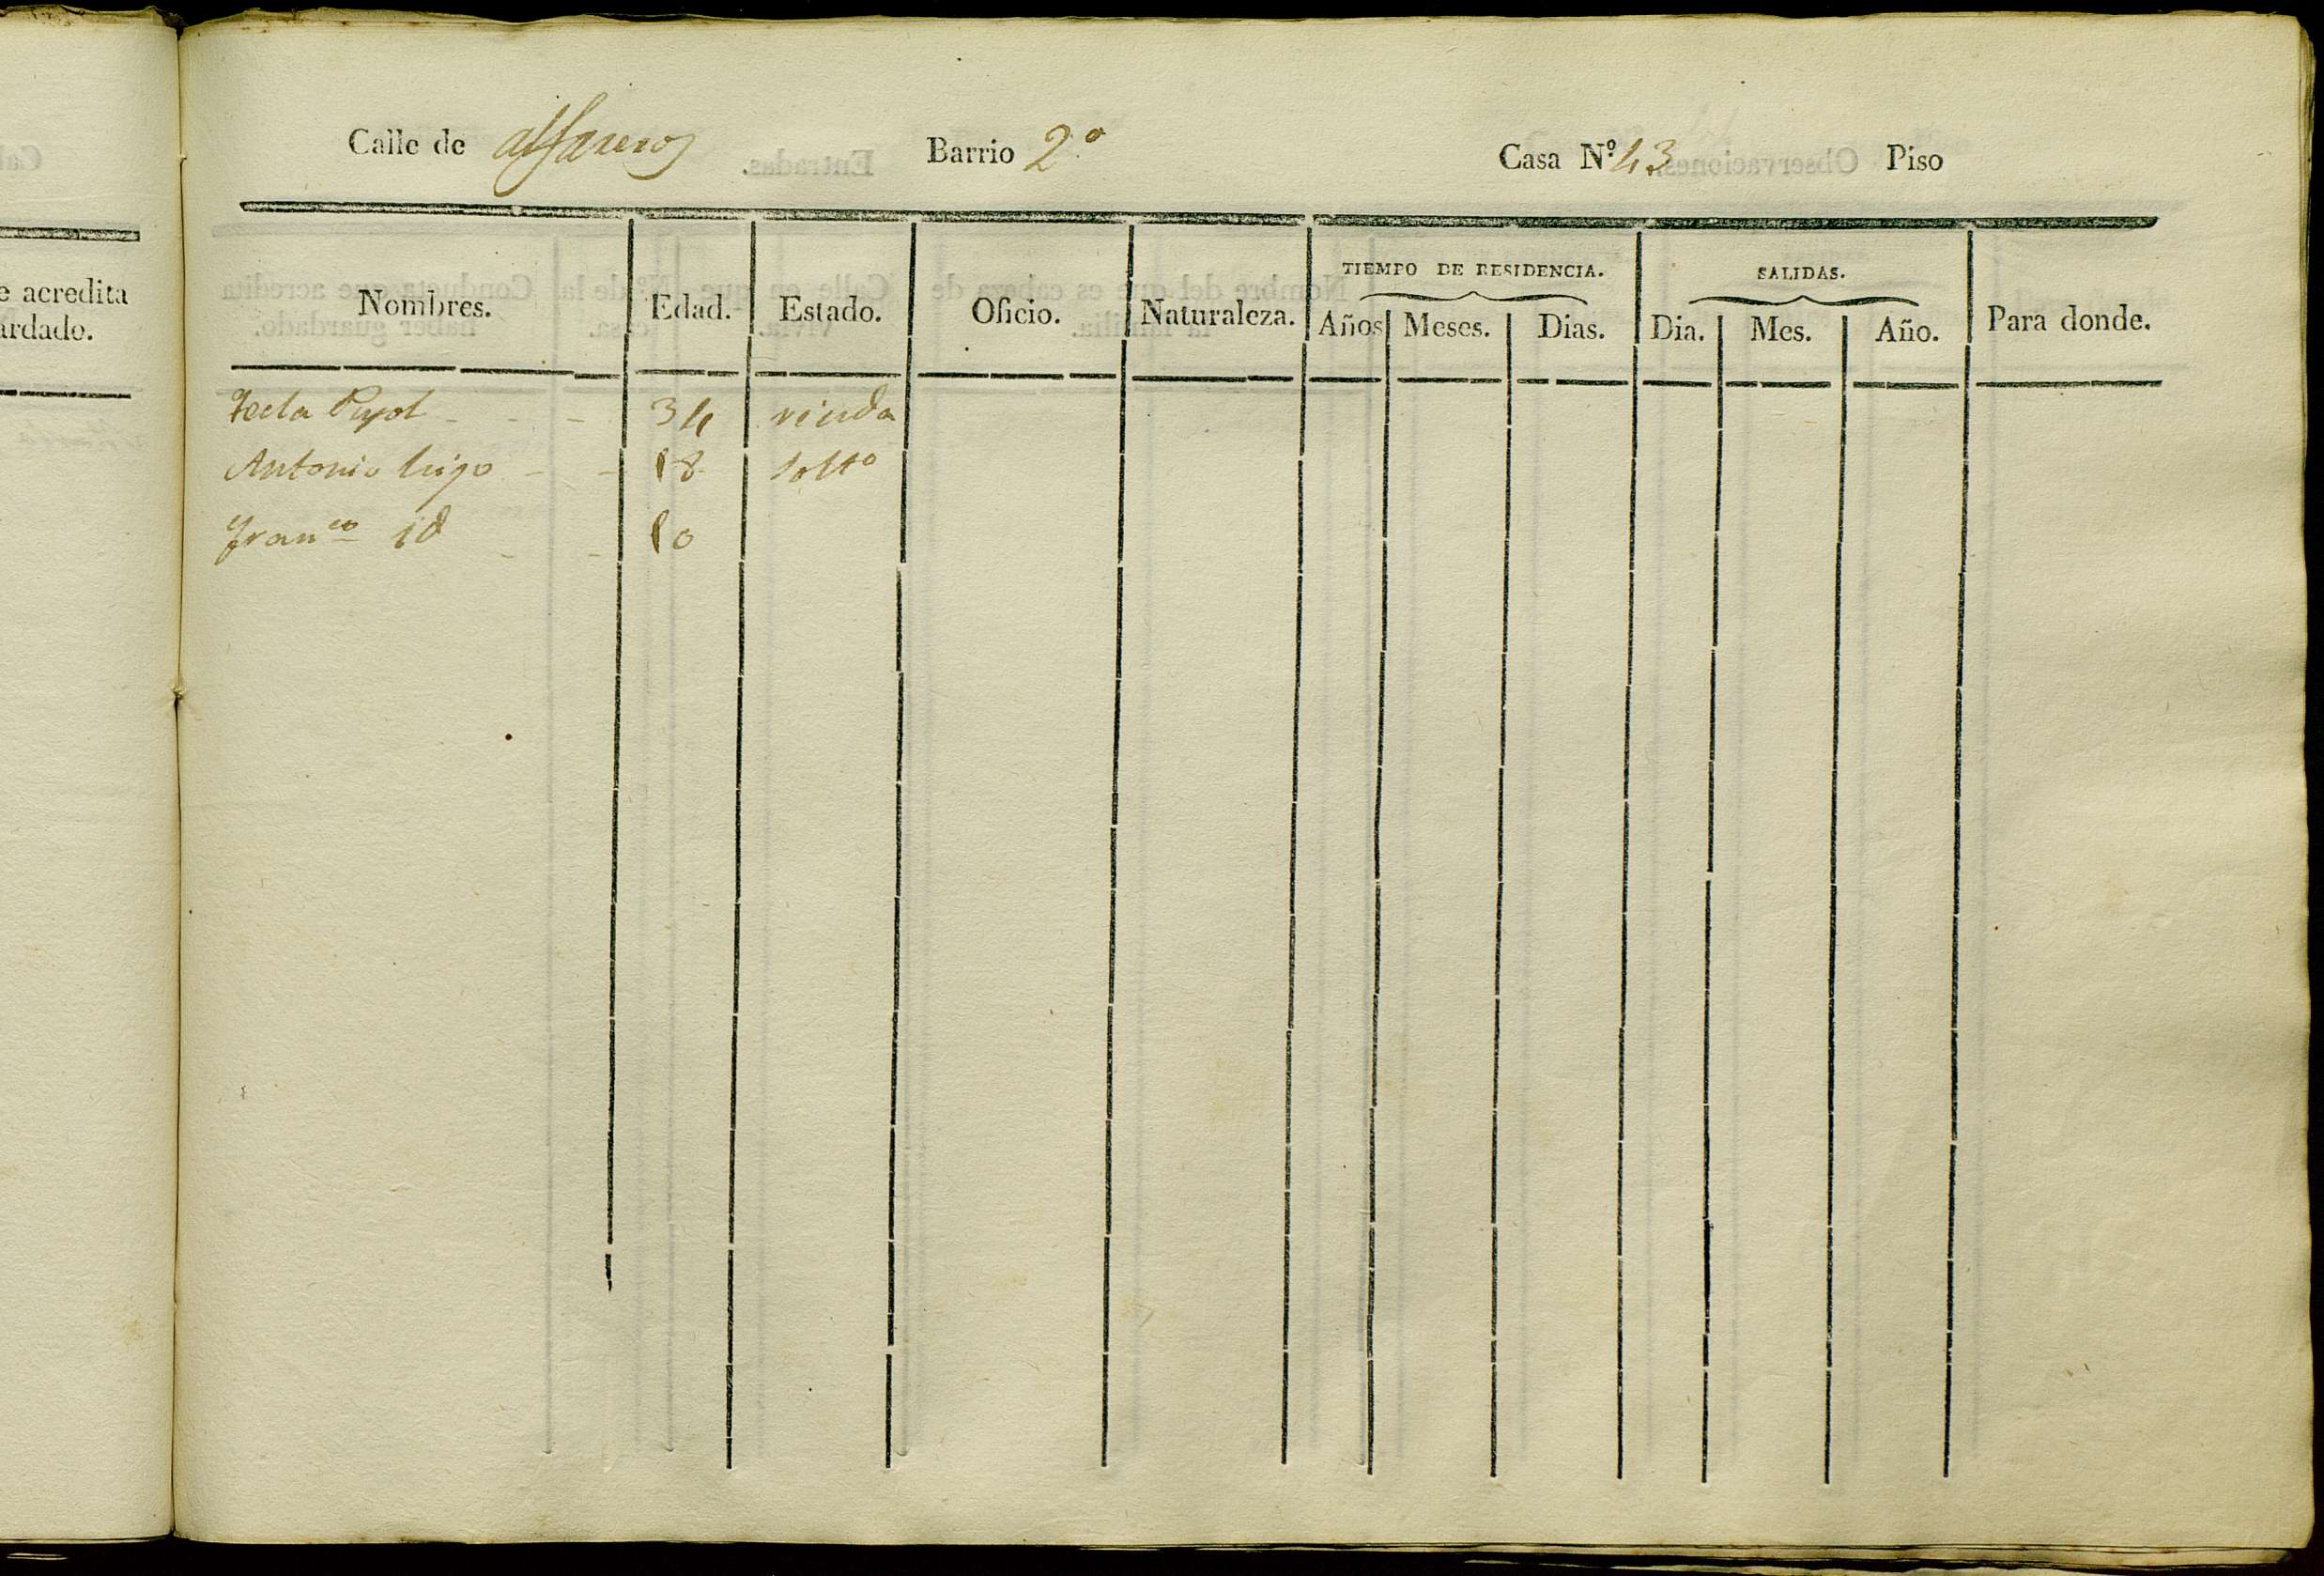 e acredita
ardado.
Calle de alfareros Barrio 2º Casa Nº 43 Piso
TIEMPO DE RESIDENCIA. SALIDAS.
Nombres. Edad. Estado. Oficio. Naturaleza. Años Meses. Dias. Dia. Mes. Año. Para donde.
Tecla Pujol - - - 34 viuda
Antonio hijo - - 18 soltº
Franco id - - 10